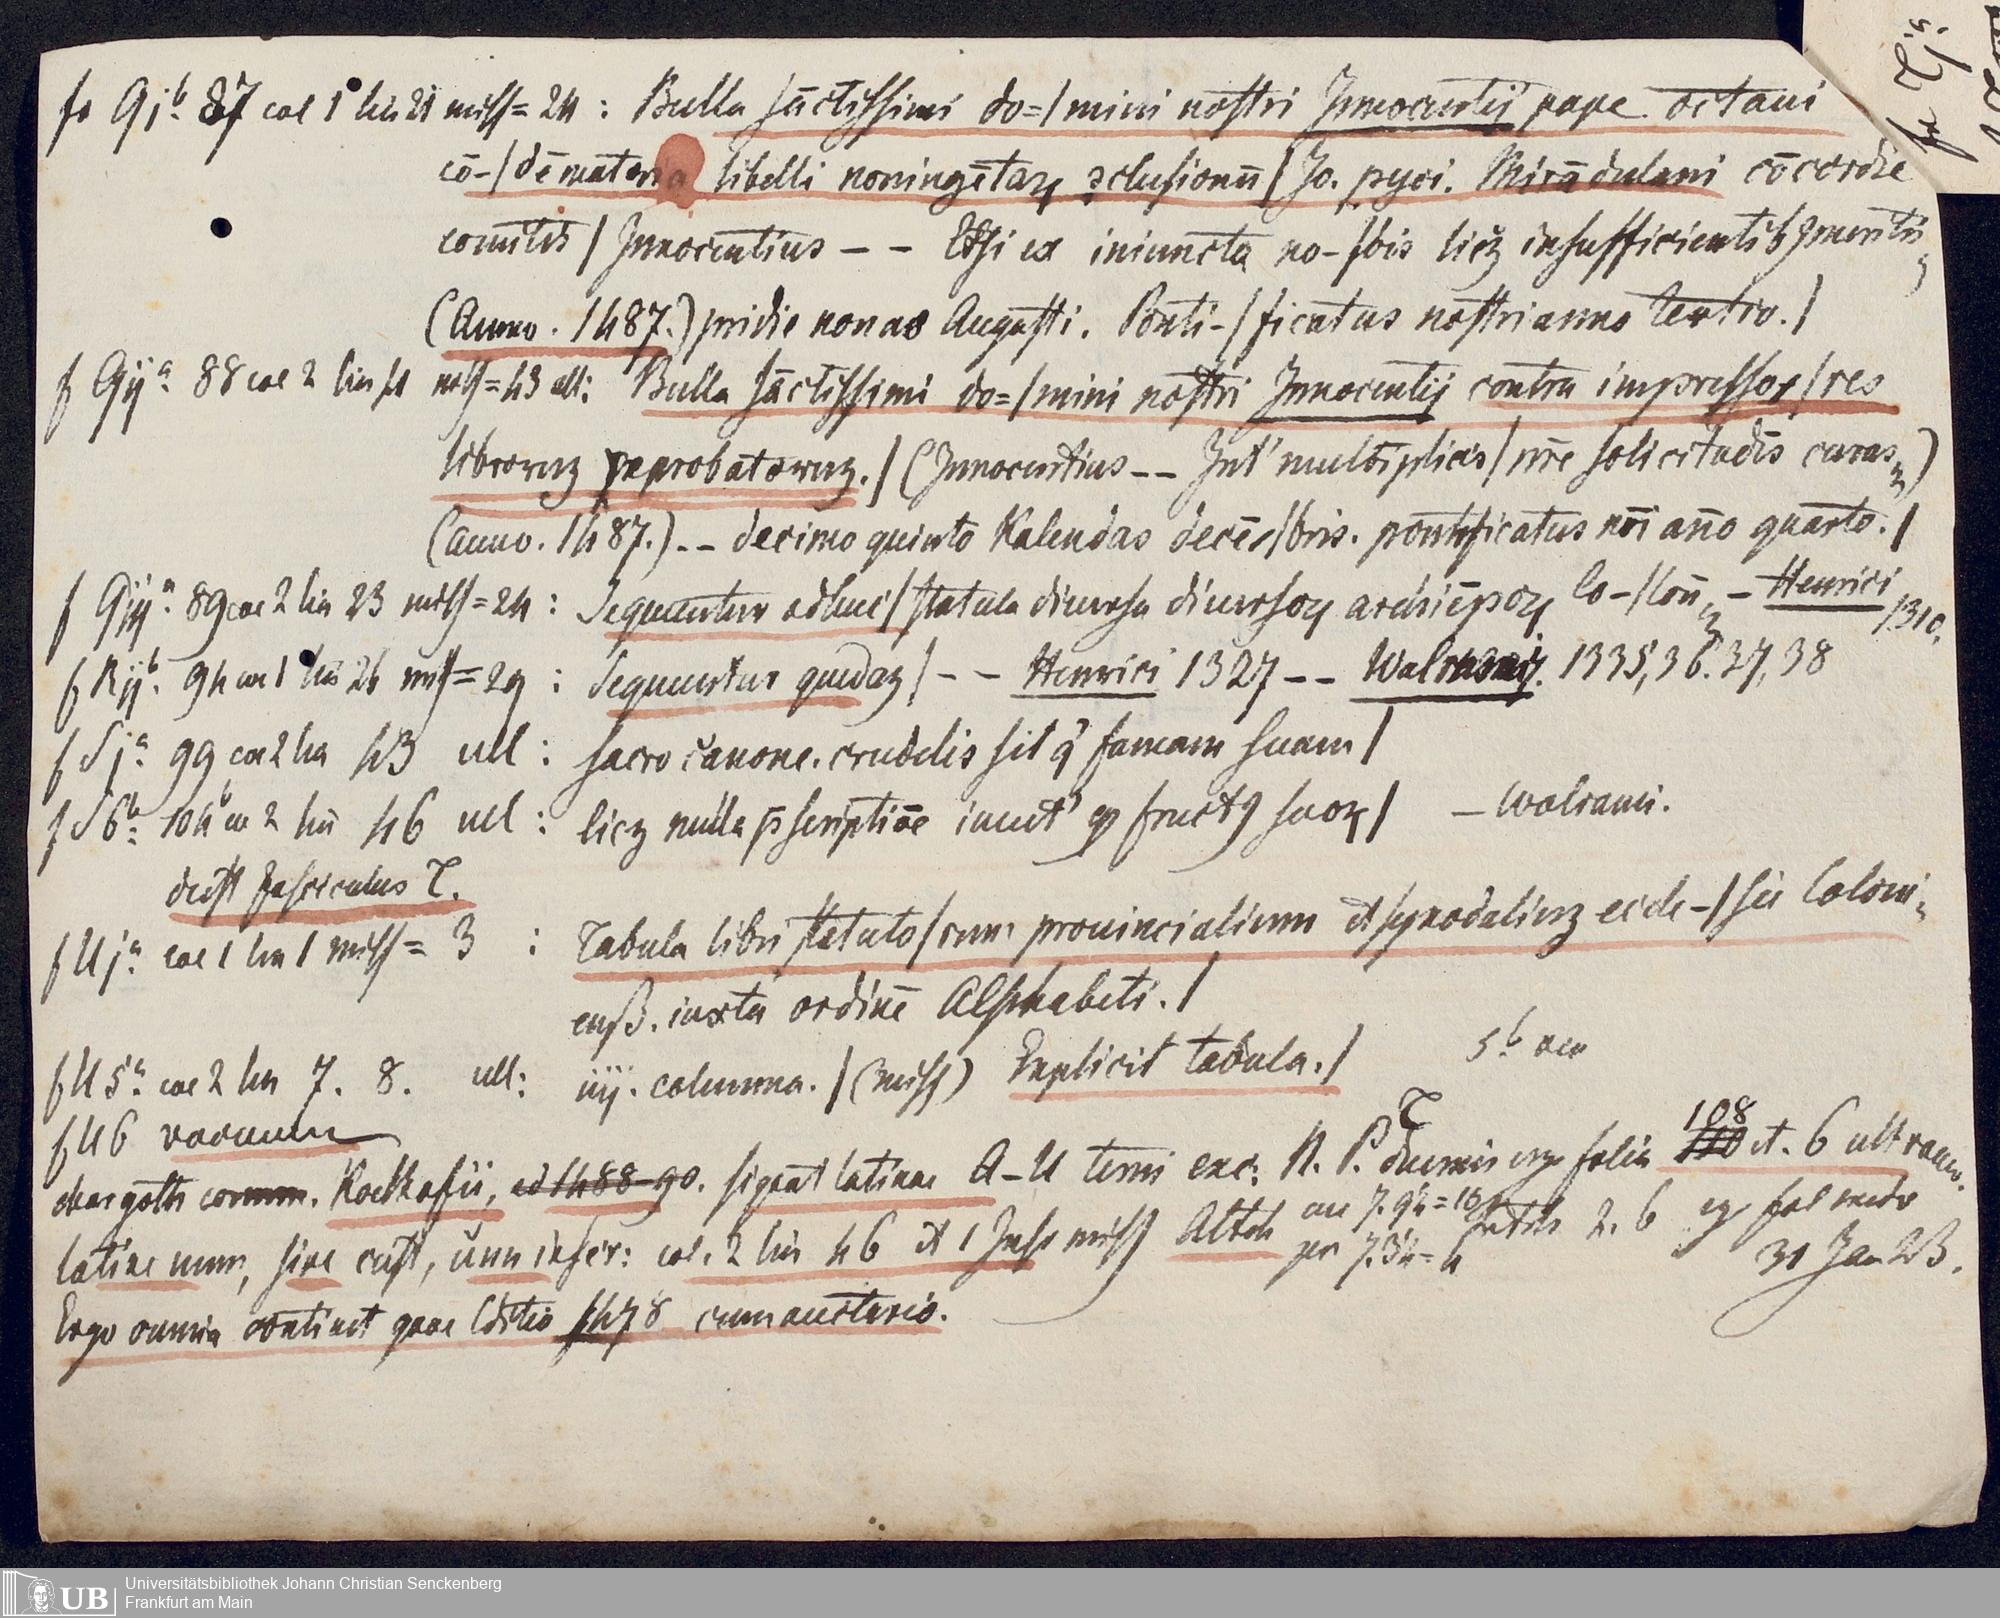 fo Qj b. 87 col 1 lin 21 miss= 24 : Bulla sāctissimi do=/mini nostri Innocentij pape octaui
cō-/dēmatoria libelli noningētaꝝ ꝯclusionū/ Jo. pyci. Mirādulani cōcordie
comitis / Innocentius – – Etsi ex iniuncta no-/bis licꝫ insufficientibꝫ meritis
(Anno. 1487.) pridie nonas Augusti. Ponti-/ficatus nostri anno tertio./
f Qij a. 88 col 2 lin miss=43 ult: Bulla sāctissimi do=/mini nostri Innocentij contra impressoꝛ/res
libroruꝫ reprobatoruꝫ./ (Innocentius – – Int' multiplicis/ nr̄e solicitudīs curas)
(Anno. 1487.) – – decimo quinto Kalendas decē-/bris. pontificatus nr̄i año quarto./
f Qiij a. 89 col 2 lin 23 miss=24 : Sequuntur adhuc/ statuta diuersa diuersoꝝ archiēpoꝝ Co-/loñ – Henrici 1310.
f Rij b. 94 col 1 lin 26 miss=29 : Sequuntur quedaꝫ/ – – Henrici 1327 – – Walrami. 1335, 36. 37, 38
f Sj a. 99 col 2 lin 43 ult : sacro canone. crudelis sit q' famam suam/
f S6 b. 104 col 2 lin 46 ult : licꝫ nulla p̄scriptiōe iuuet' fructꝰ suoꝝ/ – Walrami.
deest fasciculus T.
f Uj a. col 1 lin 1 miss= 3 : Tabula libri statuto/rum prouincialium et synodaliuꝫ eccle-/sie Coloni-
enß. iuxta ordinē Alphabeti./
f U5 a. col 2 lin 7. 8. ult: iiij. columna. / (miss) Explicit tabula./ 5 b. vac
f U6 vacuum
char goth comm. Koelhofii, ad 1488–90. signat latinae A–U terni exc: N. P. T duernis ergo folia 108 et. 6 ult vacuo.
latine num, sine cust, inn infer: col. 2 lin 46 et 1 Insc miss Altit 7. 9¼ = 2. 6 eg fol medo
per 7. 3¼ = 4 31 Jan 23.
Ergo omnia continet quae Editio 1478 cum auctario.
Universitätsbibliothek Johann Christian Senckenberg
Frankfurt am Main
UB